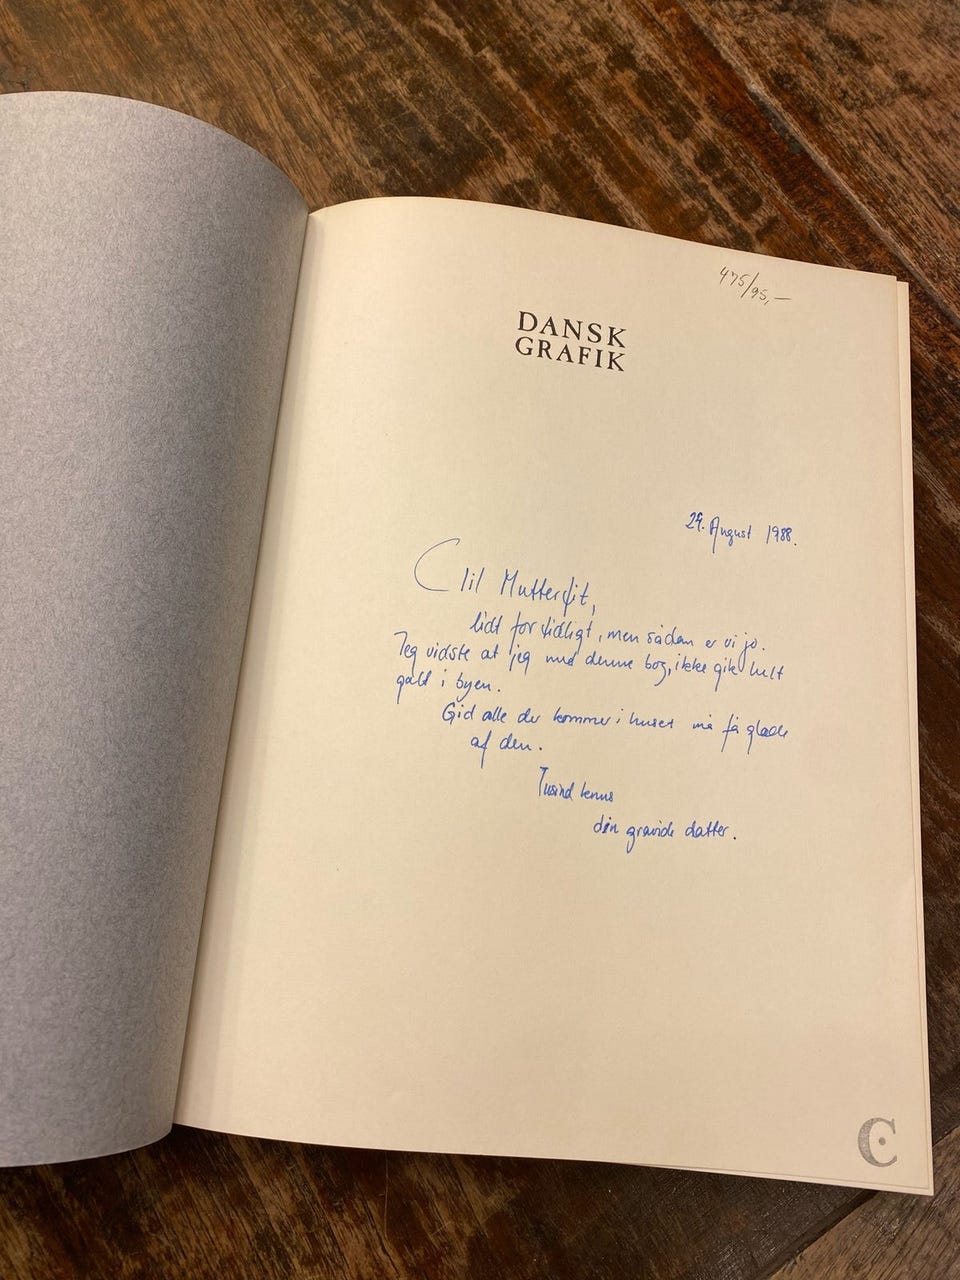 475/95,-
DANSK
GRAFIK
29. August 1988.
Til
lidt for tidligt, men sådan er vi jo.
Jeg vidste at jeg med denne bog, ikke gik helt
galt i byen.
Gid alle der kommer i huset må få glæde
af den.
Tusind
din gravide datter.
C